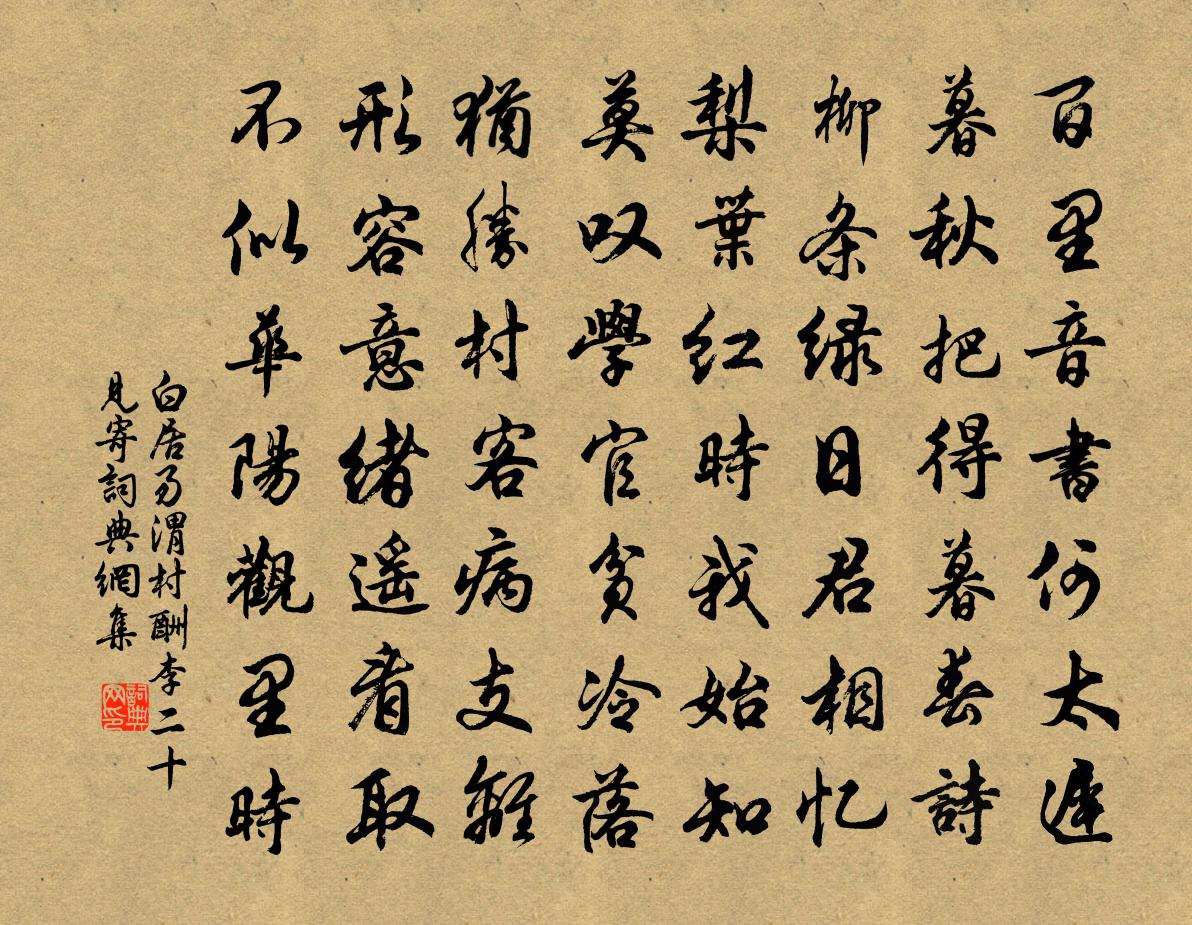 百里音書何太遲
暮秋把得暮春詩
柳条緑日君相忆
梨葉紅時我始知
莫叹學官貧冷落
猶勝村客病支離
形容意緒遥看取
不似華陽觀里時
白居易渭村酬李二十
見寄詞典網集
詞典网印